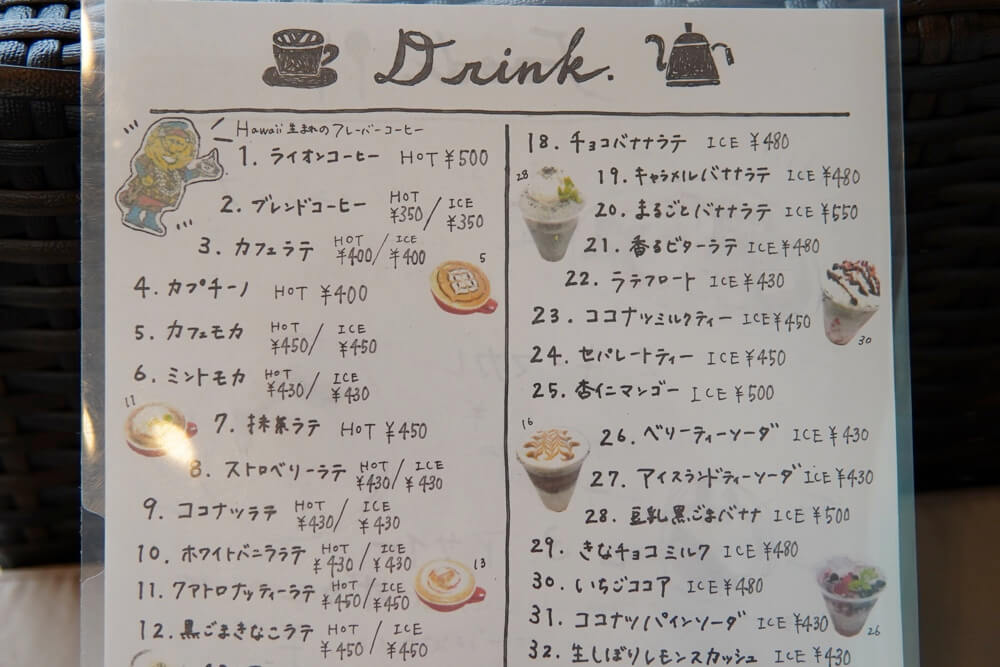 Drink.
Hawaii 生まれの フレーバーコーヒー
1. ライオンコーヒー HOT ¥500
2. ブレンドコーヒー HOT ¥350 / ICE ¥350
3. カフェラテ HOT ¥400 / ICE ¥400
4. カプチーノ HOT ¥400
5
5. カフェモカ HOT ¥450 / ICE ¥450
6. ミントモカ HOT ¥430 / ICE ¥430
11
7. 抹茶ラテ HOT ¥450
8. ストロベリーラテ HOT ¥430 / ICE ¥430
9. ココナッツラテ HOT ¥430 / ICE ¥430
10. ホワイトバニララテ HOT ¥430 / ICE ¥430
13
11. クアトロナッティーラテ HOT ¥450 / ICE ¥450
12. 黒ごまきなこラテ HOT ¥450 / ICE ¥450
18. チョコバナナラテ ICE ¥480
28
19. キャラメルバナナラテ ICE ¥480
20. まるごとバナナラテ ICE ¥550
21. 香るビターラテ ICE ¥480
22. ラテフロート ICE ¥430
23. ココナツミルクティー ICE ¥450
30
24. セパレートティー ICE ¥450
25. 杏仁マンゴー ICE ¥500
16
26. ベリーティーソーダ ICE ¥430
27. アイスランドティーソーダ ICE ¥430
28. 豆乳黒ごまバナナ ICE ¥500
29. きなチョコミルク ICE ¥480
30. いちごココア ICE ¥480
31. ココナツパインソーダ ICE ¥430
26
32. 生しぼりレモンスカッシュ ICE ¥430